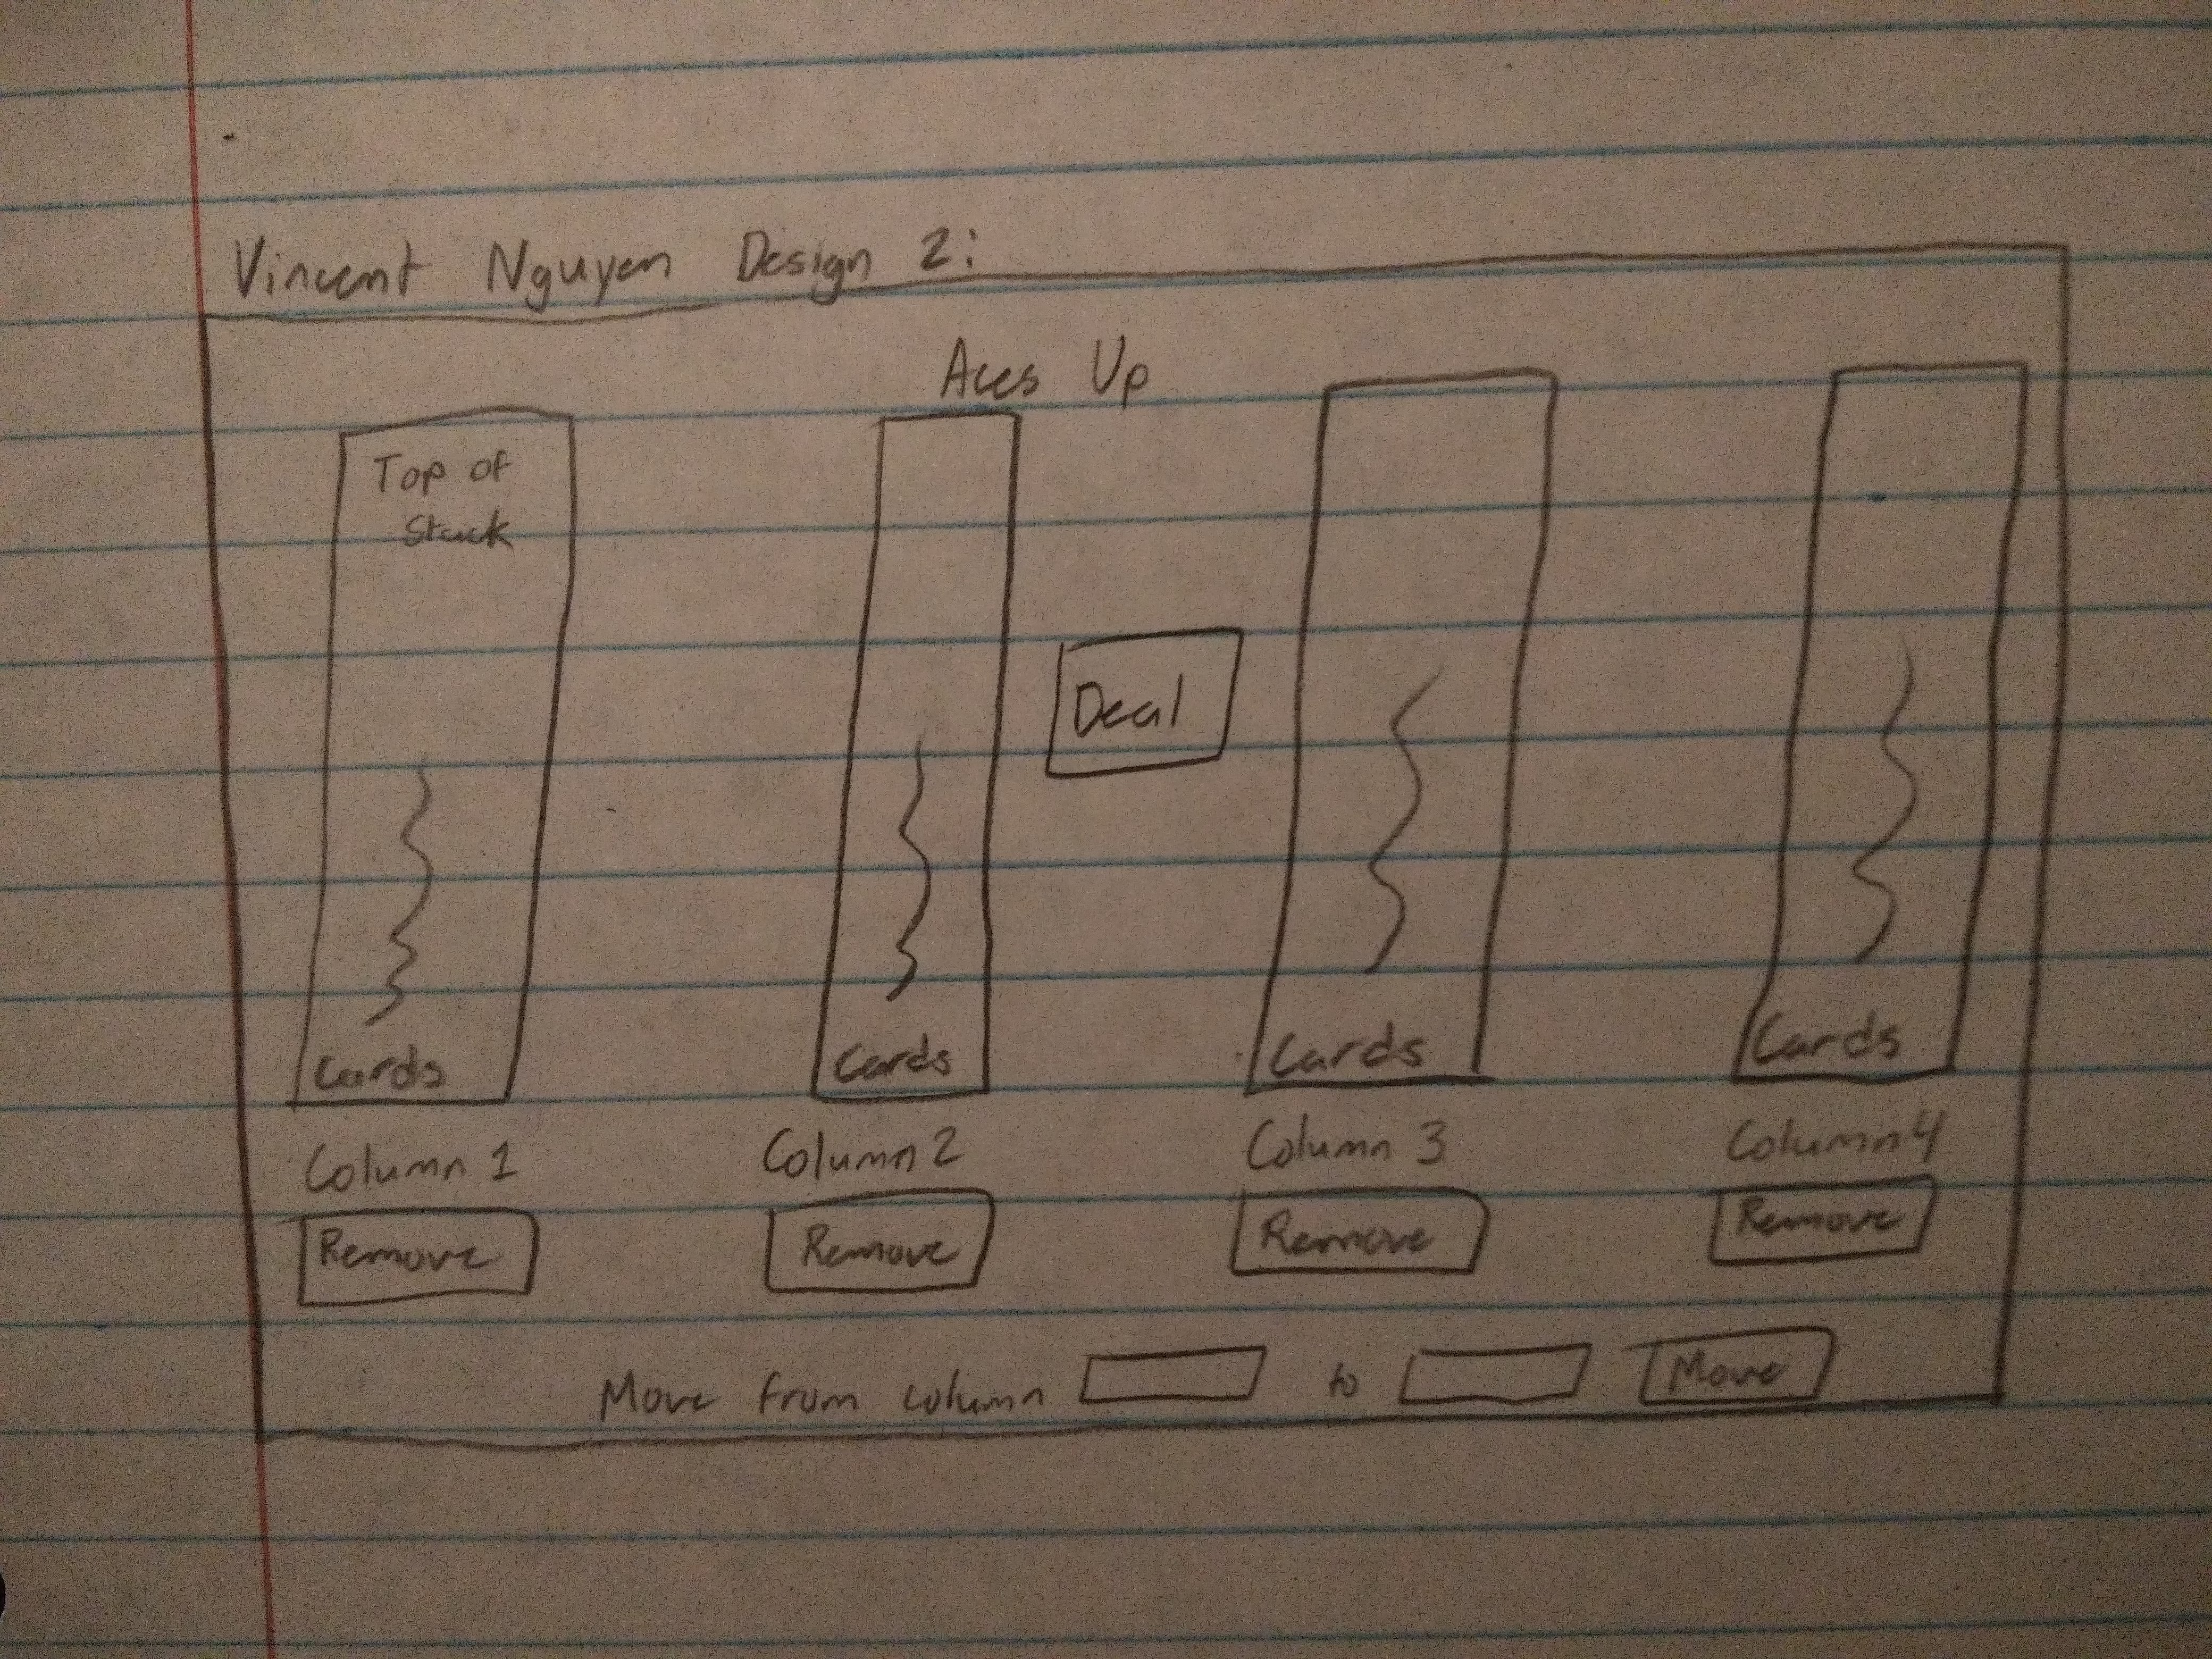 Vincent Nguyen Design 2:
Aces Up
Top of
Stack
Deal
Cards
Cards
Cards
Cards
Column 1
Column 2
Column 3
Column 4
Remove
Remove
Remove
Remove
Move from column to Move